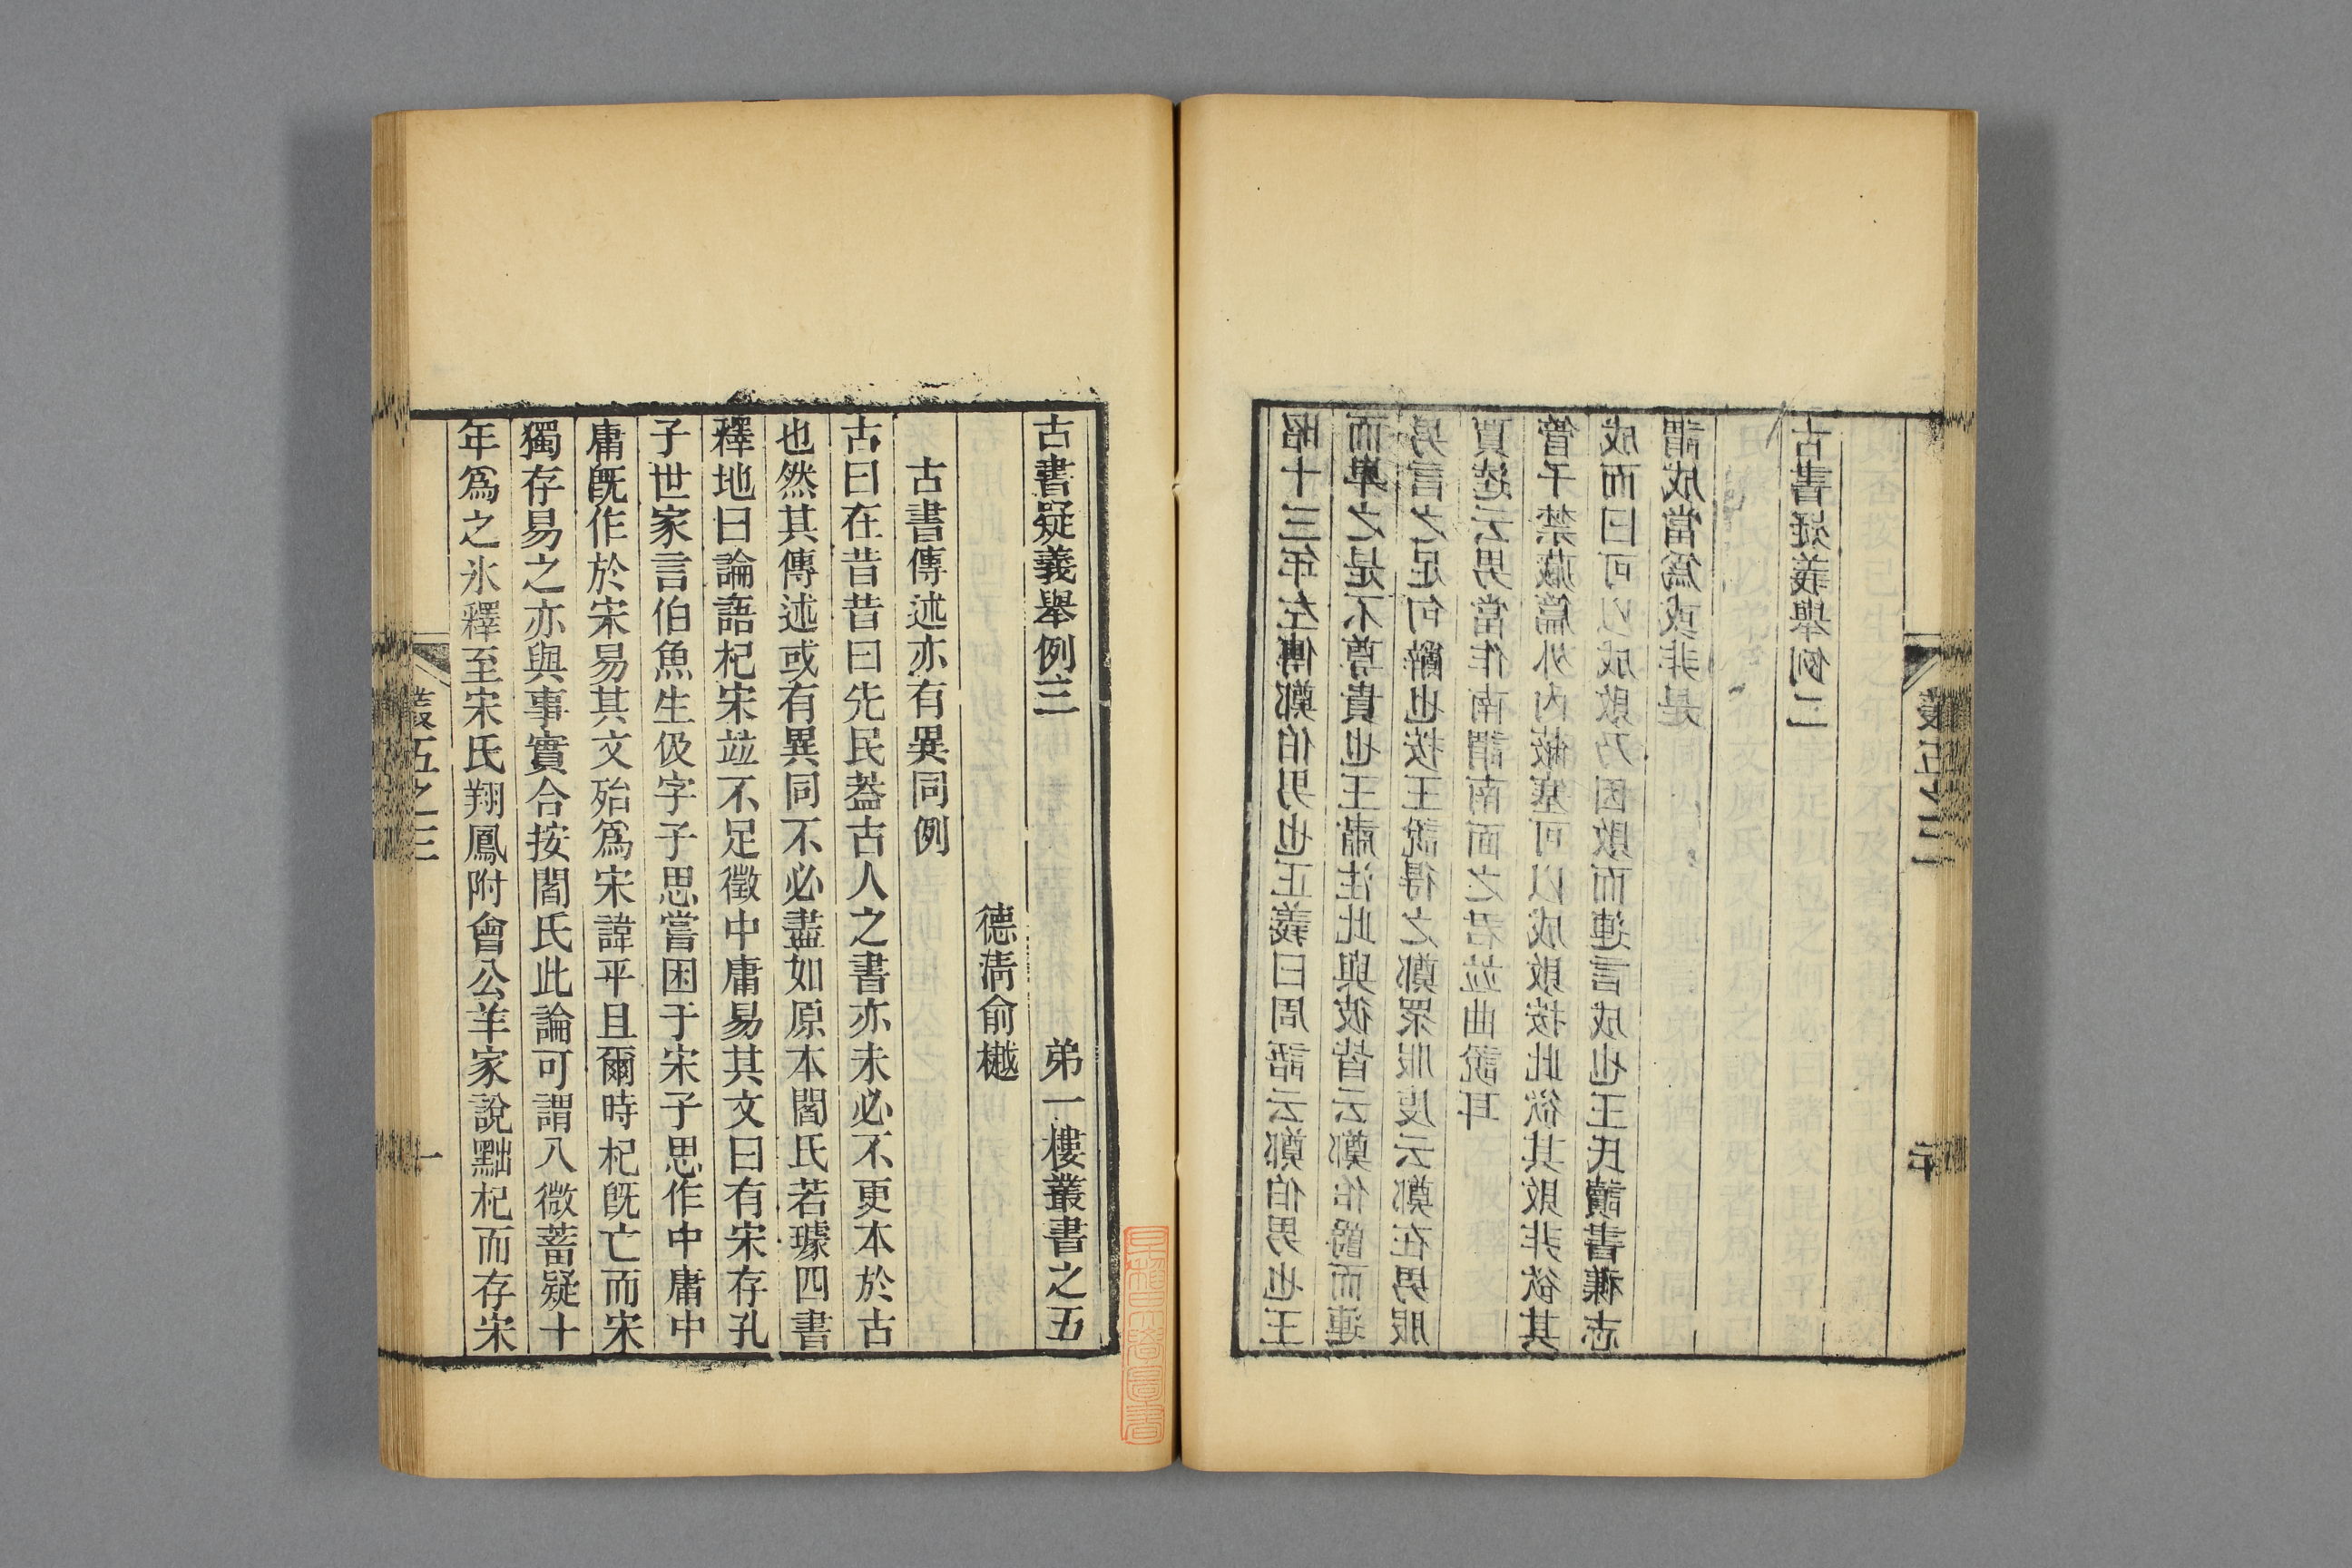 昭十三年左傳鄭伯男也正義曰周語云鄭伯男也王
而卑之是不尊貴也王肅注此與彼皆云鄭伯爵而連
男言之足句辭也按王說得之鄭眾服虔云鄭在男服
賈逵云男當作南謂南面之君竝曲說耳
管子禁藏篇外內蔽塞可以成敗按此欲其敗非欲其
成而曰可以成敗乃因敗而連言成也王氏讀書襍志
謂成當爲或非是
古書疑義舉例二
叢五之二
古書疑義舉例三 弟一樓叢書之五
德清俞樾
古書傳述亦有異同例
古曰在昔昔曰先民葢古人之書亦未必不更本於古
也然其傳述或有異同不必盡如原本閻氏若璩四書
釋地曰論語杞宋竝不足徵中庸易其文曰有宋存孔
子世家言伯魚生伋字子思嘗困于宋子思作中庸中
庸旣作於宋易其文殆爲宋諱乎且爾時杞旣亡而宋
獨存易之亦與事實合按閻氏此論可謂入微蓄疑十
年爲之氷釋至宋氏翔鳳附會公羊家說黜杞而存宋
叢五之三
一